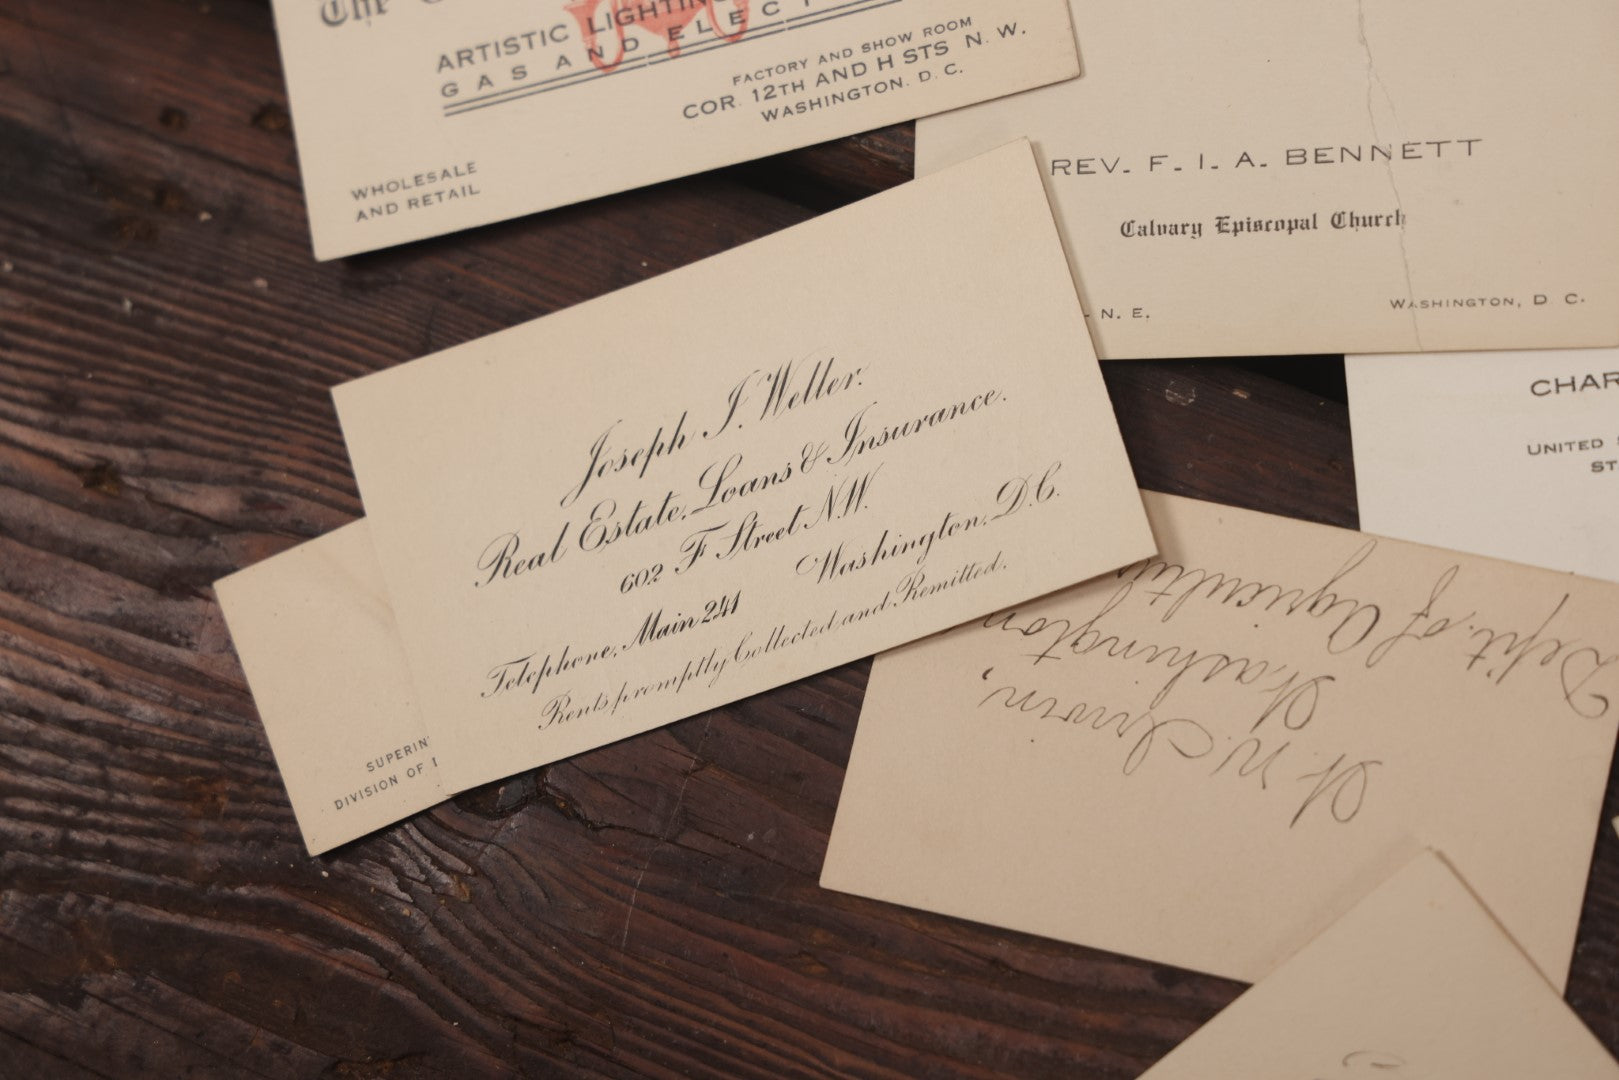 The
ARTISTIC LIGHTING
GAS AND ELECT
FACTORY AND SHOW ROOM
COR. 12TH AND H STS N. W.
WASHINGTON. D. C.
WHOLESALE
AND RETAIL
REV. F. I. A. BENNETT
Calvary Episcopal Church
N. E.
WASHINGTON, D C.
CHAR
UNITED
ST
Joseph I. Weller.
Real Estate, Loans & Insurance.
602 F Street N.W.
Telephone, Main 241
Washington, D.C.
Rents promptly Collected and Remitted.
SUPERIN
DIVISION OF
H. W. Irwin,
Washington
Dept. of Agricultu